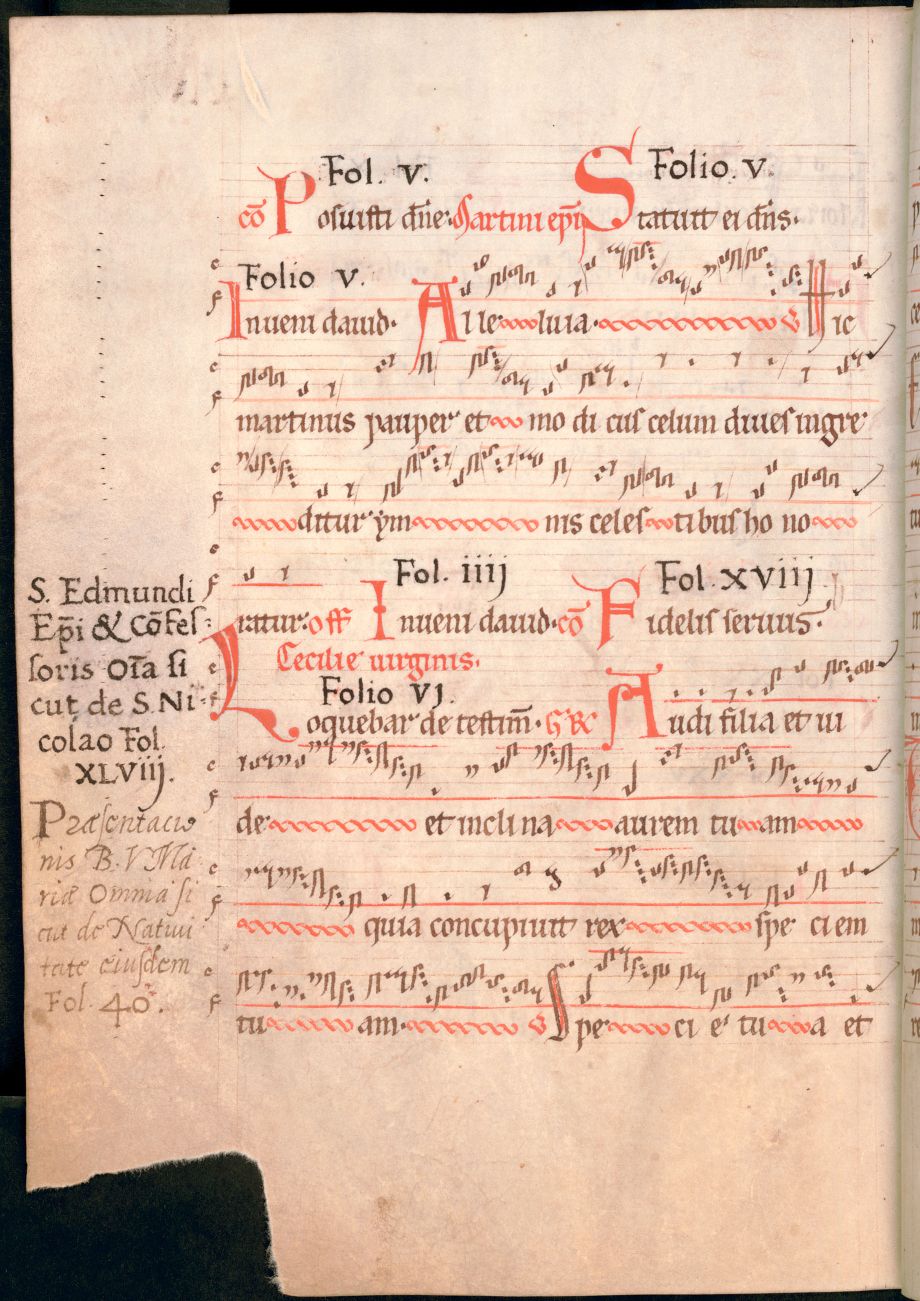 Fol. v. Folio. v.
cō Posuisti dñe. Martini ep̄i Statuit ei dñs.
Folio v.
Inueni dauid. Alleluia. v Hic
martinus pauper et mo di cus celum diues ingre
ditur ym nis celes tibus ho no
Fol. iiij Fol. xviij.
ratur. off Inueni dauid. cō Fidelis seruus.
Cecilie uirginis.
Folio vj.
Loquebar de testim̄. Gr̄ Audi filia et ui
de et incli na aurem tu am
quia concupiuit rex spe ciem
tu am. v Spe ci e tu a et
S. Edmundi
Ep̄i & Cōfes-
soris oīa si
cut de S. Ni-
colao Fol.
XLViij.
Præsentacio
nis B. V Ma
riæ Omnia si
cut de Natiui
tate eiusdem
Fol. 40.